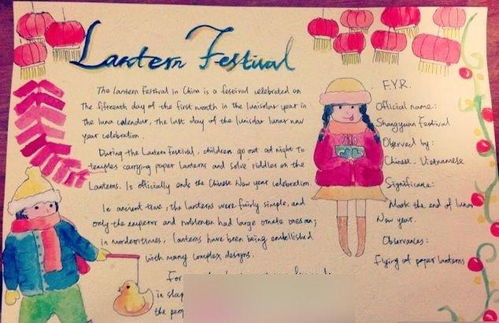 Lantern Festival
The lantern Festival in China is a festival celebrated on
the fifteenth day of the first month in the lunisolar year in
the luna calendar, the last day of the lunisolar lunar new
year celebration.
During the Lantern Festival, children go out at night to
temples carrying paper lanterns and solve riddles on the
lanterns. Is officially ends the Chinese New year celebration
In ancient time, the lanterns were fairly simple, and
only the emperor and noblemen had large ornate ones;
in modern times, lanterns have been being embellished
with many complex designs.
For
in
the
F.Y.R.
Official name:
Shangyuan Festival
Observed by:
Chinese. Vietnamese
Significance:
Mark the end of lunar
New year.
Observances:
Flying of paper lanterns